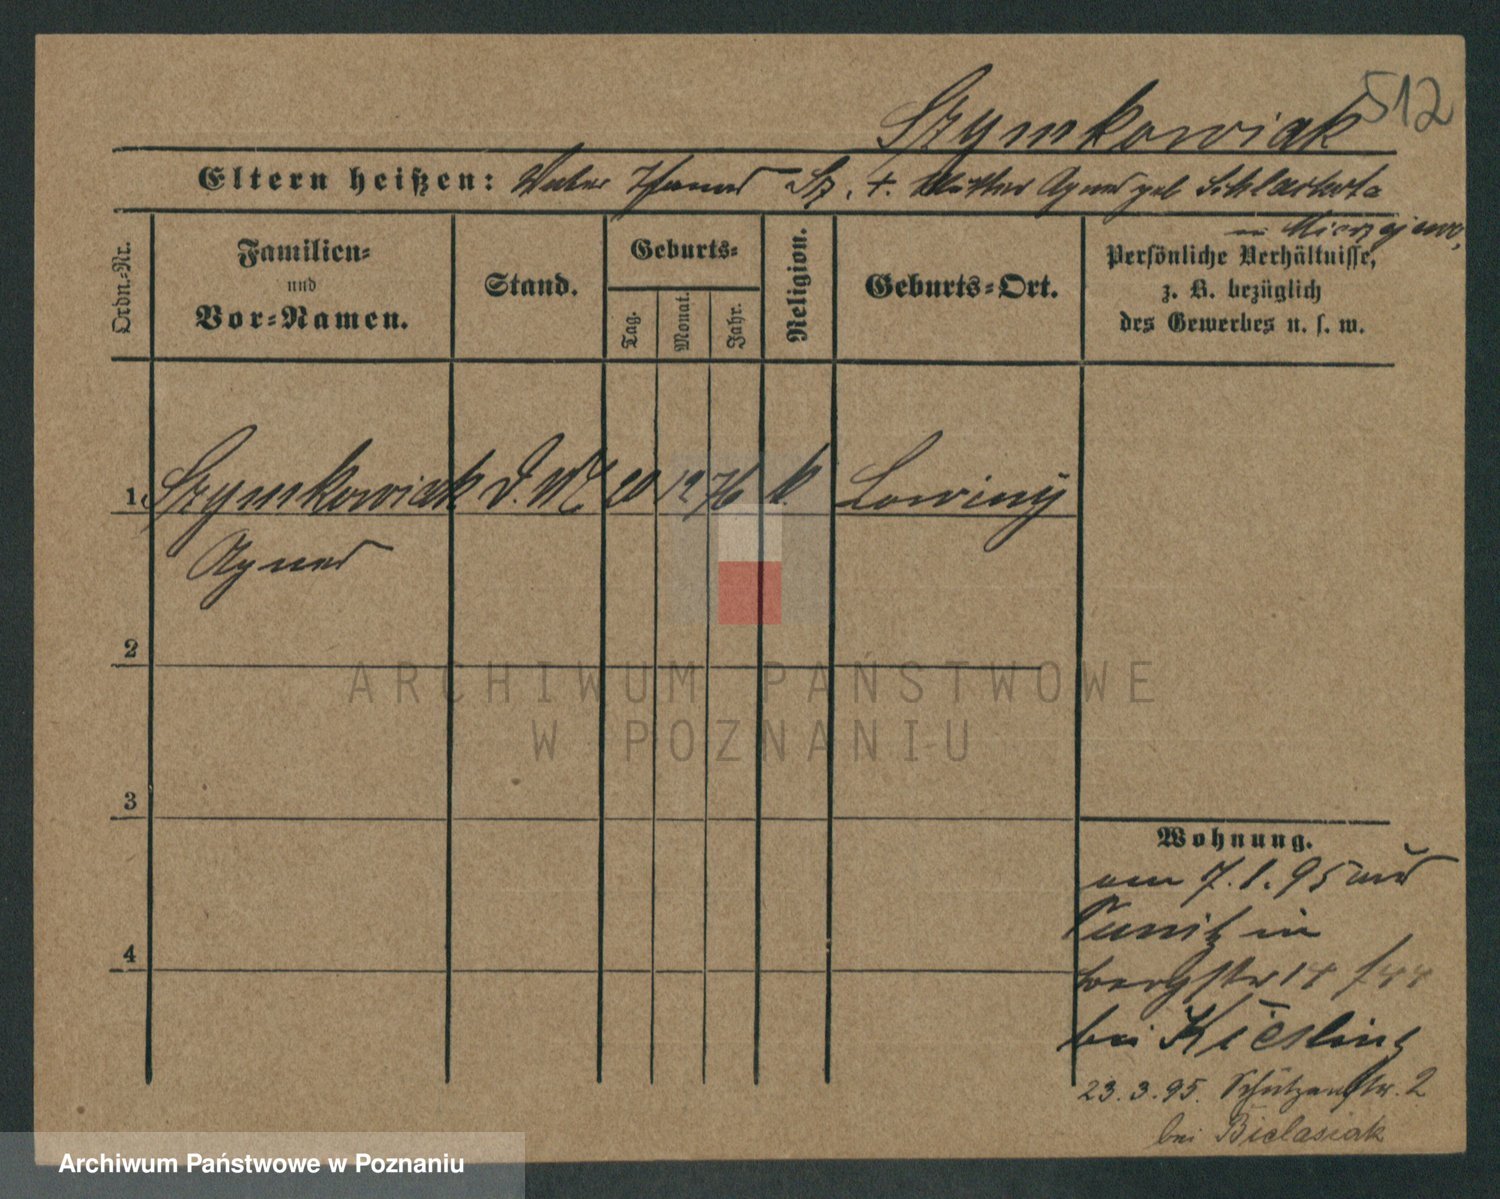 512
Szymkowiak
Eltern heißen: Vater Sz. †. Mutter Agnes geb
in
Ordn.-Nr.
Familien-
und
Vor-Namen.
Stand.
Geburts-
Tag.
Monat.
Jahr.
Religion.
Geburts-Ort.
Persönliche Verhältnisse,
z. B. bezüglich
des Gewerbes u. s. w.
1. Szymkowiak D.M. 20 12 76 k. Lowiny
Agnes
2
3
4
Wohnung.
am 7.1.95 aus
Punitz in
bergstr 14
bei Kiesling
23.3.95. Schützenstr. 2
bei Bielasiak
ARCHIWUM PAŃSTWOWE
W POZNANIU
Archiwum Państwowe w Poznaniu